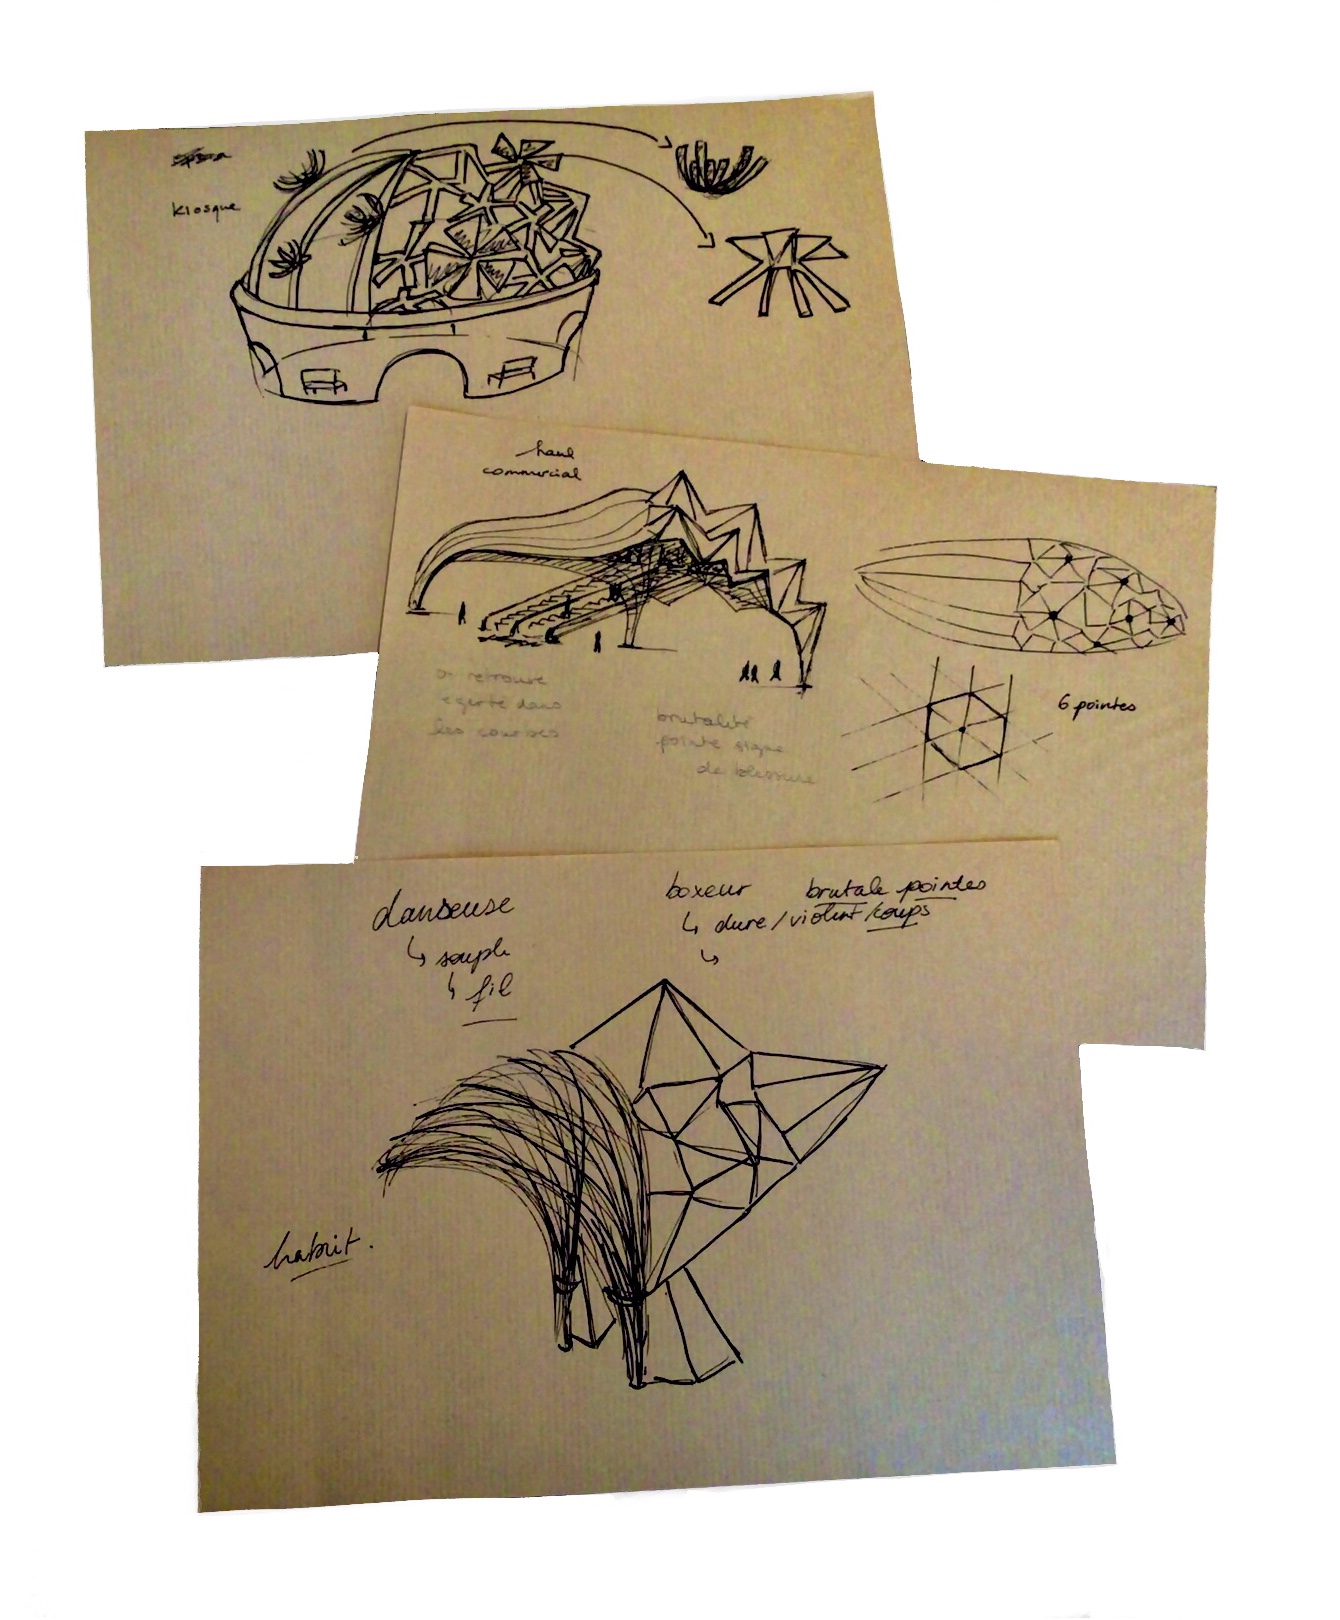 kiosque
haul
commercial
on retrouve
legerté dans
les courbes
brutalité
pointe signe
de blessure
6 pointes
danseuse
↳ souple
↳ fil
boxeur
↳ dure / violent / coups
↳
brutale pointes
habrit.